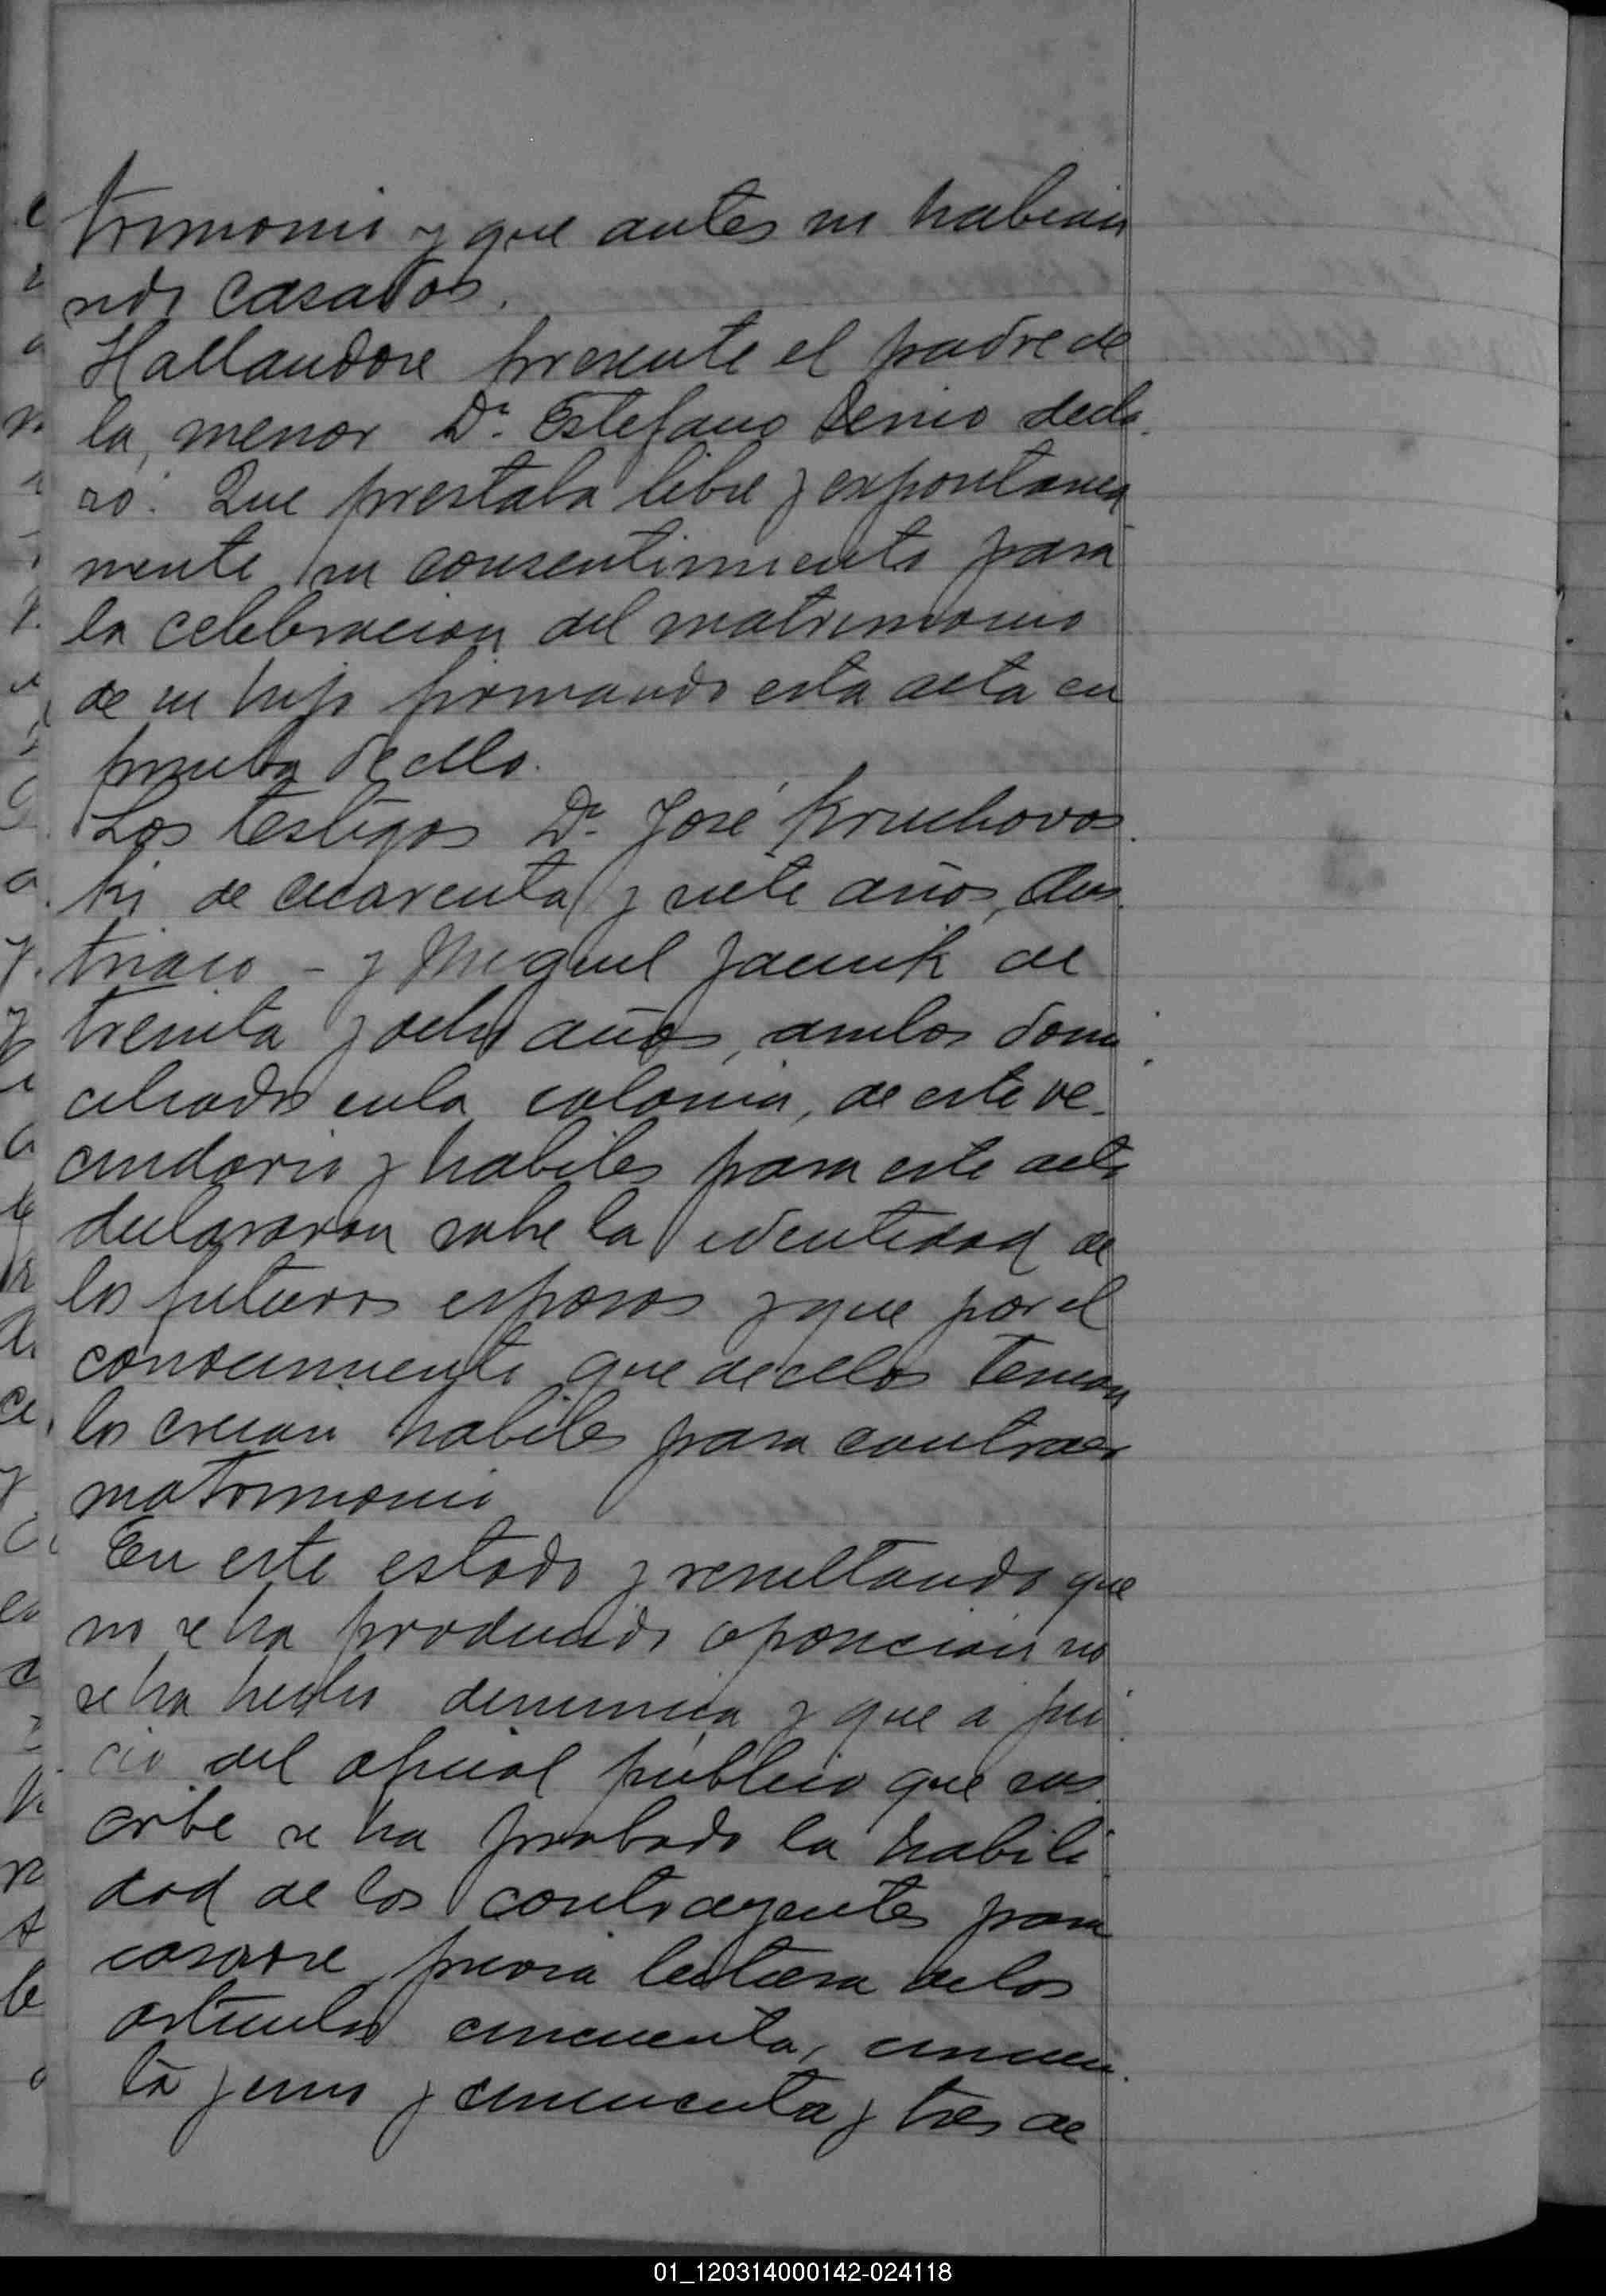 trimonio y que antes no habian
sido casados.
Hallandose presente el padre de
la menor Dn. Estefano Denio decla
ró: Que prestaba libre y expontanea
mente su consentimiento para
la celebracion del matrimonio
de su hija firmando esta acta en
prueba de ello.
Los testigos Dn. José Kruchovos
ki de cuarenta y siete años, Aus
triaco - y Miguel Jacuik de
treinta y ocho años, ambos domi
ciliados en la colonia, de este ve
cindario y habiles para este acto
declararon sobre la identidad de
los futuros esposos y que por el
conocimiento que de ellos tenian
los creian habiles para contraer
matrimonio
En este estado y resultando que
no se ha producido oposicion no
se ha hecho denuncia y que a jui
cio del oficial público que sus
cribe se ha probado la habili
dad de los contrayentes para
casarse previa lectura de los
articulos cincuenta, cincuen
ta y uno y cincuenta y tres de
01_120314000142-024118